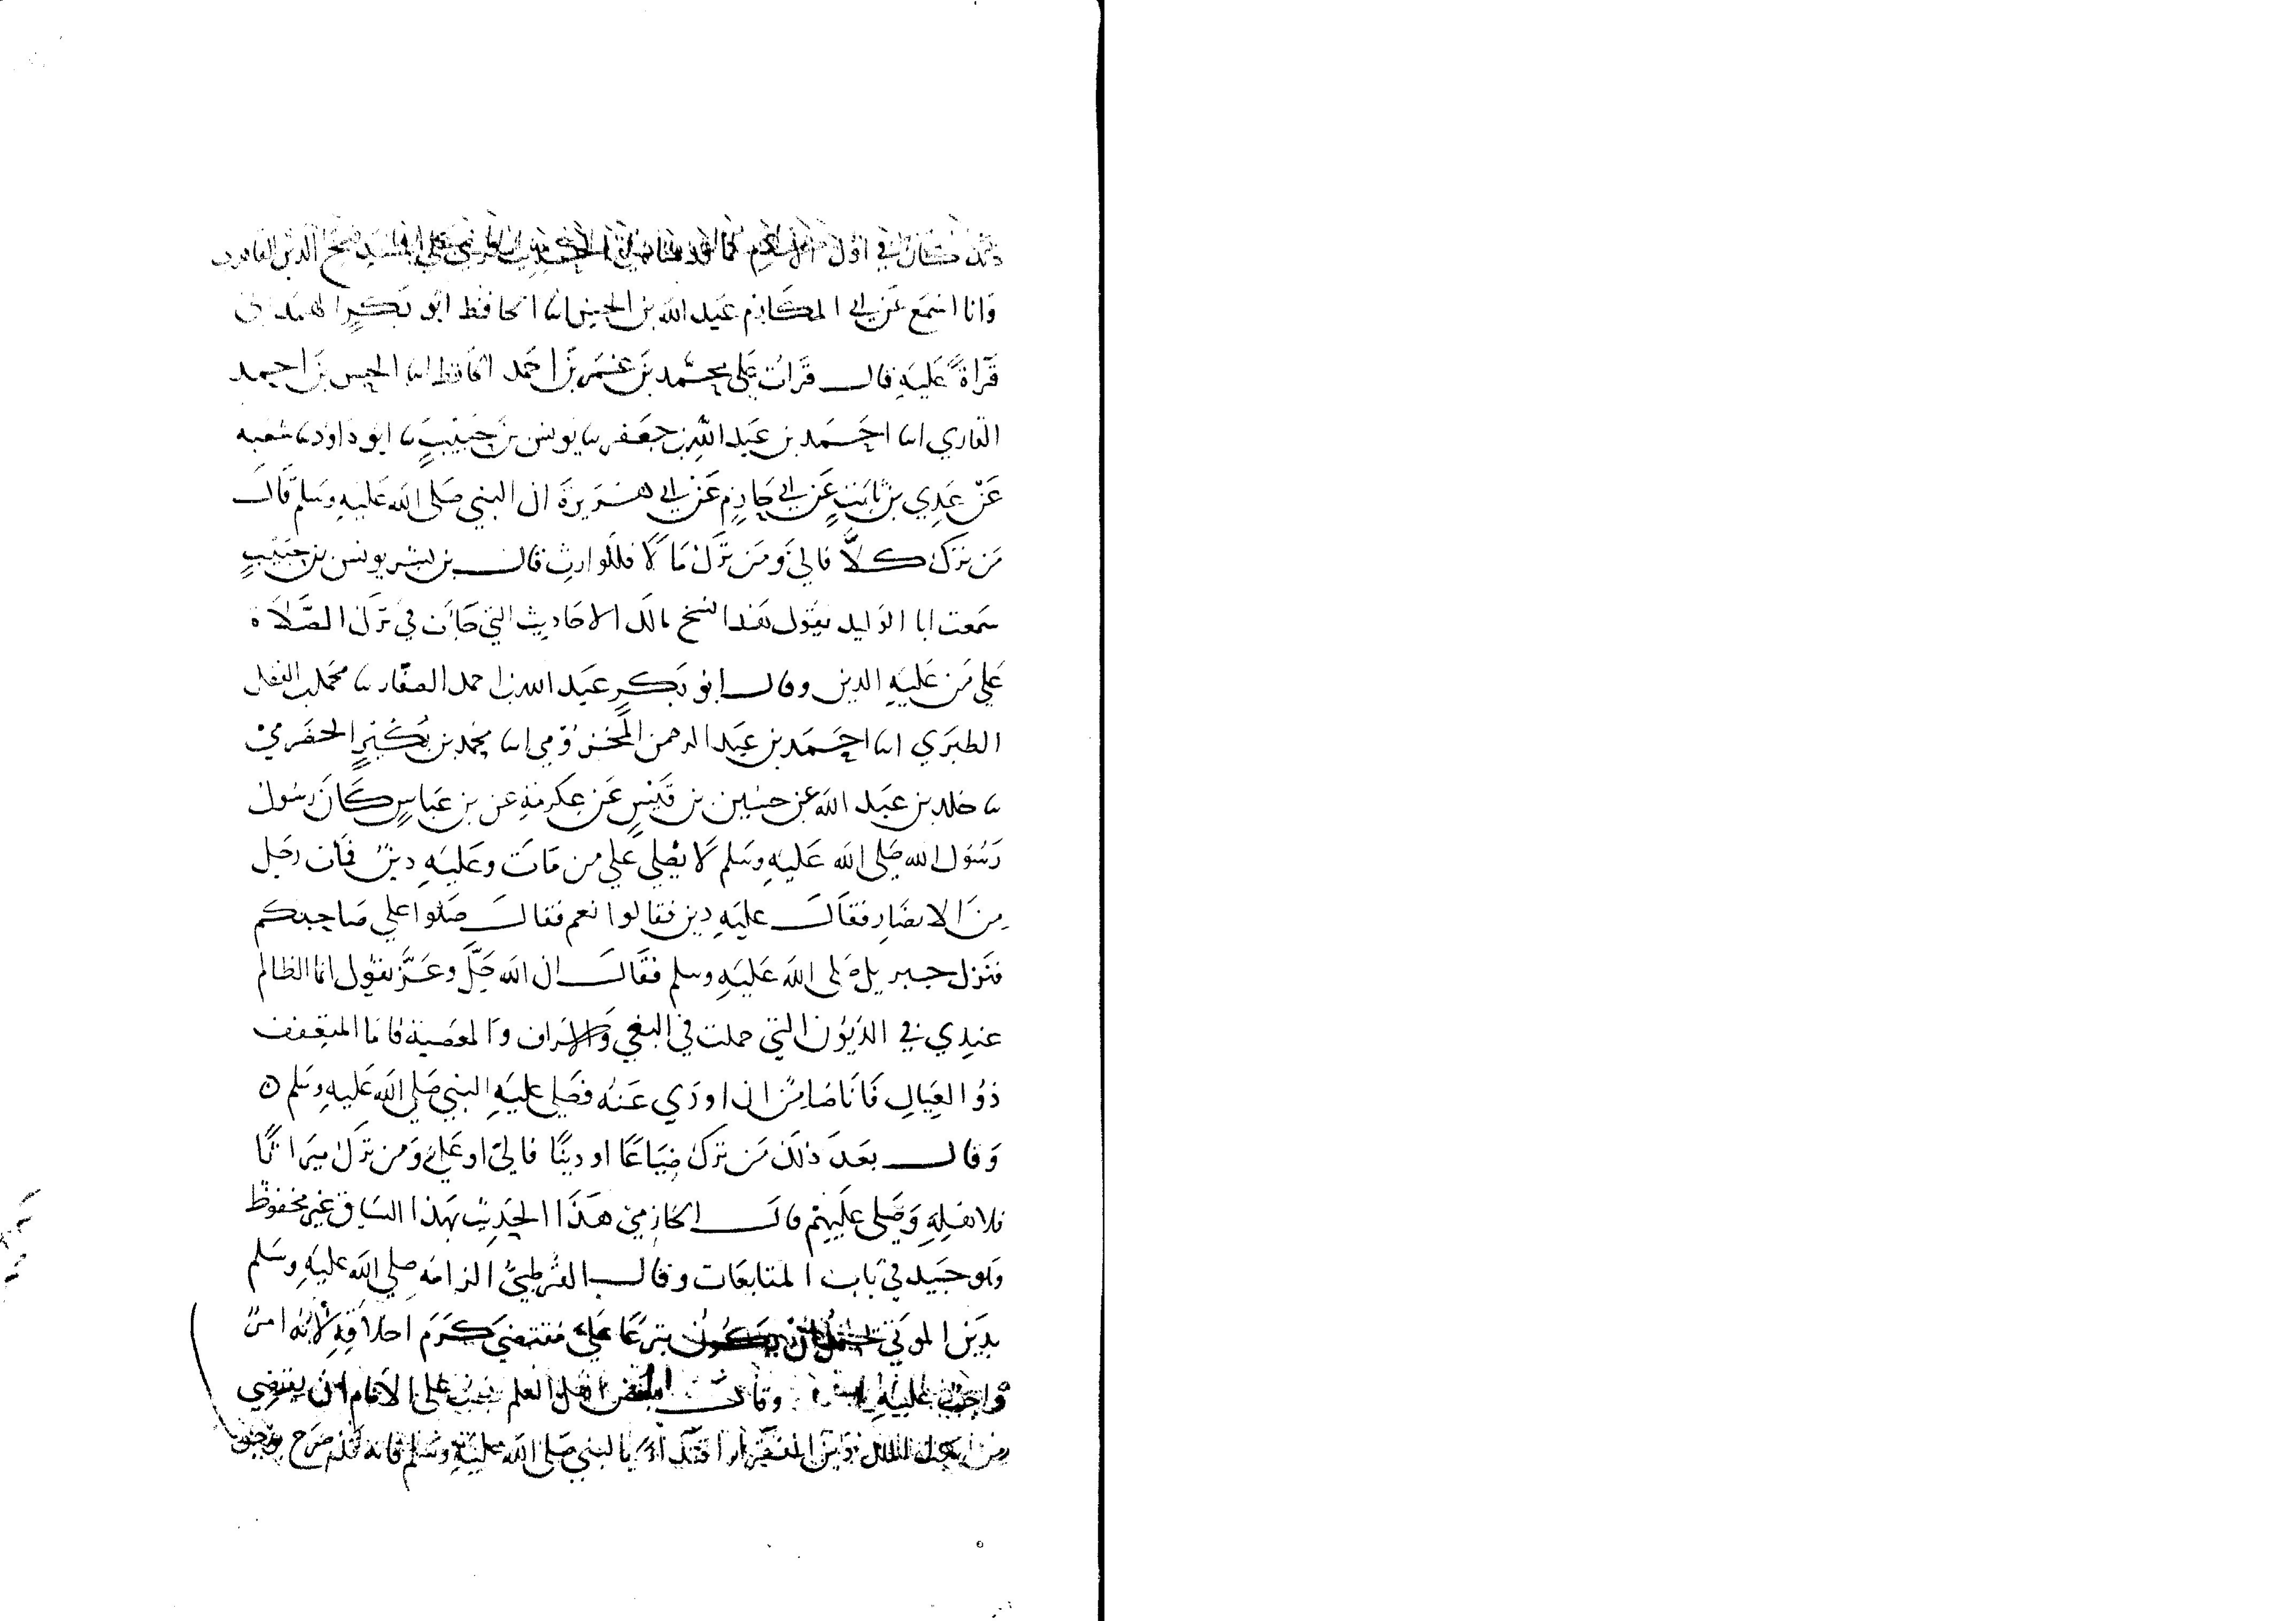 ذلك كان في اول الاسلام كما قد علي السيد الدين
وانا اسمع عن ابي المكارم عبد الله بن الحسين انا الحافظ ابو بكر الهمداني
قراة عليه قال قرات علي محمد بن عمر بن احمد الحافظ انا الحسن بن احمد
القاري انا احمد بن عبد الله بن جعفر ثنا يونس بن حبيب ثنا ابو داود ثنا شعبه
عن عدي بن ثابت عن ابي حازم عن ابي هريرة ان النبي صلى الله عليه وسلم قال
من ترك كلا فالي ومن ترك مالا فللوارث قال بن بشر يونس بن حبيب
سمعت ابا الوليد يقول هذا نسخ تلك الاحاديث التي جات في ترك الصلاة
علي من عليه الدين وقال ابو بكر عبد الله بن احمد الصفار ثنا محمد بن الفضل
الطبري انا احمد بن عبد الرحمن المخزومي انا محمد بن بكير الحضرمي
ثنا خلد بن عبد الله عن حسين بن قيس عن عكرمة عن بن عباس كان رسول
رسول الله صلى الله عليه وسلم لا يصلي علي من مات وعليه دين فمات رجل
من الانصار فقال عليه دين فقالوا نعم فقال صلوا علي صاحبكم
فنزل جبريل صلى الله عليه وسلم فقال ان الله جل وعز يقول انما الظالم
عندي في الديون التي حملت في البغي والاسراف والمعصية فاما المتعفف
ذو العيال فانا ضامن ان اودي عنه فصلي عليه النبي صلي الله عليه وسلم ه
وقال بعد ذلك من ترك ضياعا او دينا فالي او علي ومن ترك ميراثا
فلاهله وصلي عليهم قال الحازمي هذا الحديث بهذا السياق غير محفوظ
وهو جيد في باب المتابعات وقال القرطبي التزامه صلي الله عليه وسلم
بدين الموتي يحتمل ان يكون تبرعا علي مقتضي كرم اخلاقه لا انه امر
واجب عليه وقال بعض اهل العلم يجب علي الامام ان يقضي
من بيت المال دين الفقرا اقتدا بالنبي صلى الله عليه وسلم فانه قد صرح بوجوب